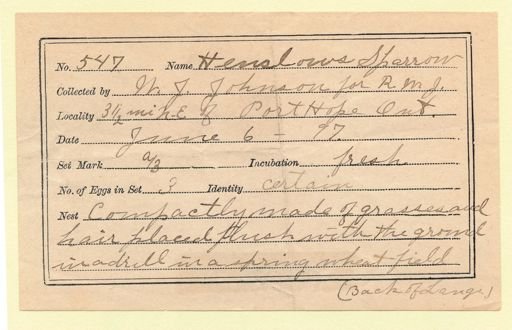 No. 547 Name Henslows Sparrow
Collected by W. J. Johnson for R.W.J.
Locality 3½ mi N.E of Port Hope Ont.
Date June 6 - 97
Set Mark a/3 Incubation fresh
No. of Eggs in Set 3 Identity certain
Nest Compactly made of grasses and
hair placed flush with the ground
in a drill in a spring wheat field
(Back of Langs)